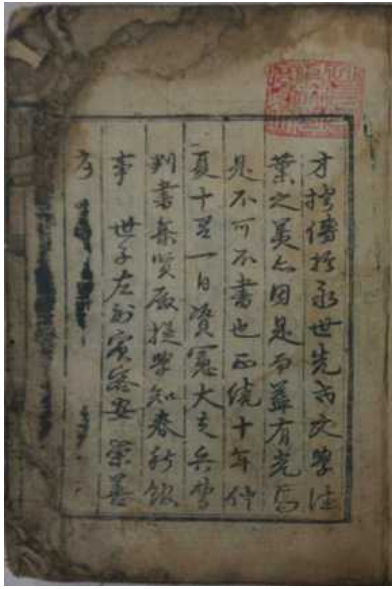 才傳於永世先文學
業之美亦因是而益有光焉
是不可不書也正統十年仲
夏十一日資憲大夫兵曹
判書集賢殿提學知春秋館
事 世子左副賓客安崇善
序